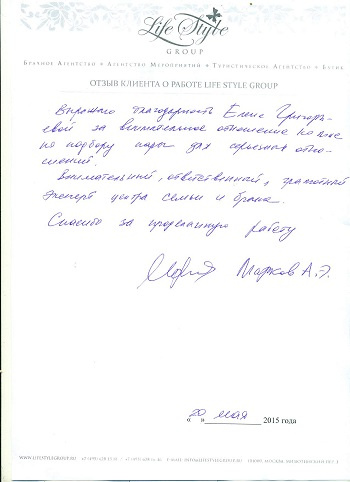 Life Style
GROUP
Брачное Агентство • Агентство Мероприятий • Туристическое Агентство •
ОТЗЫВ КЛИЕНТА О РАБОТЕ LIFE STYLE GROUP
Выражаю благодарность Елене Григорь-
евой за внимательное отношение
по подбору пары для серьезных отно-
шений.
Внимательный, ответственный, грамотный
эксперт центра семьи и брака.
Спасибо за проделанную работу
Марков А.Э.
« 20 » мая 2015 года
WWW.LIFESTYLEGROUP.RU